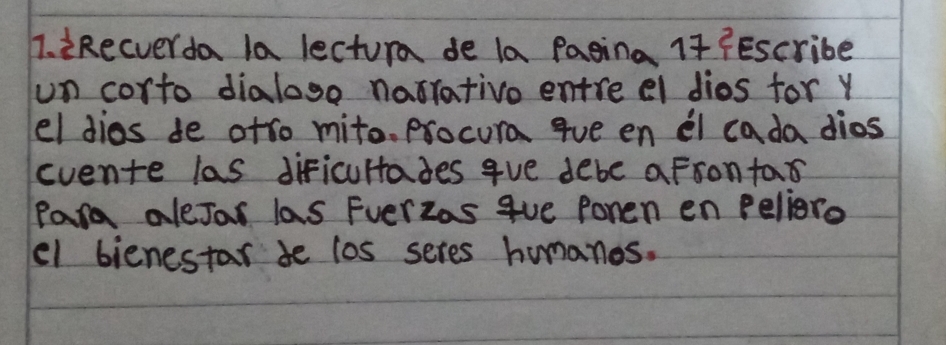 1.¿Recuerda la lectura de la Pagina 17?Escribe
un corto dialogo narrativo entre el dios tor y
el dios de otro mito.Procura que en él cada dios
cuente las dificultades que debe afrontar
Para alejar las Fuerzas que Ponen en Peligro
el bienestar de los seres humanos.